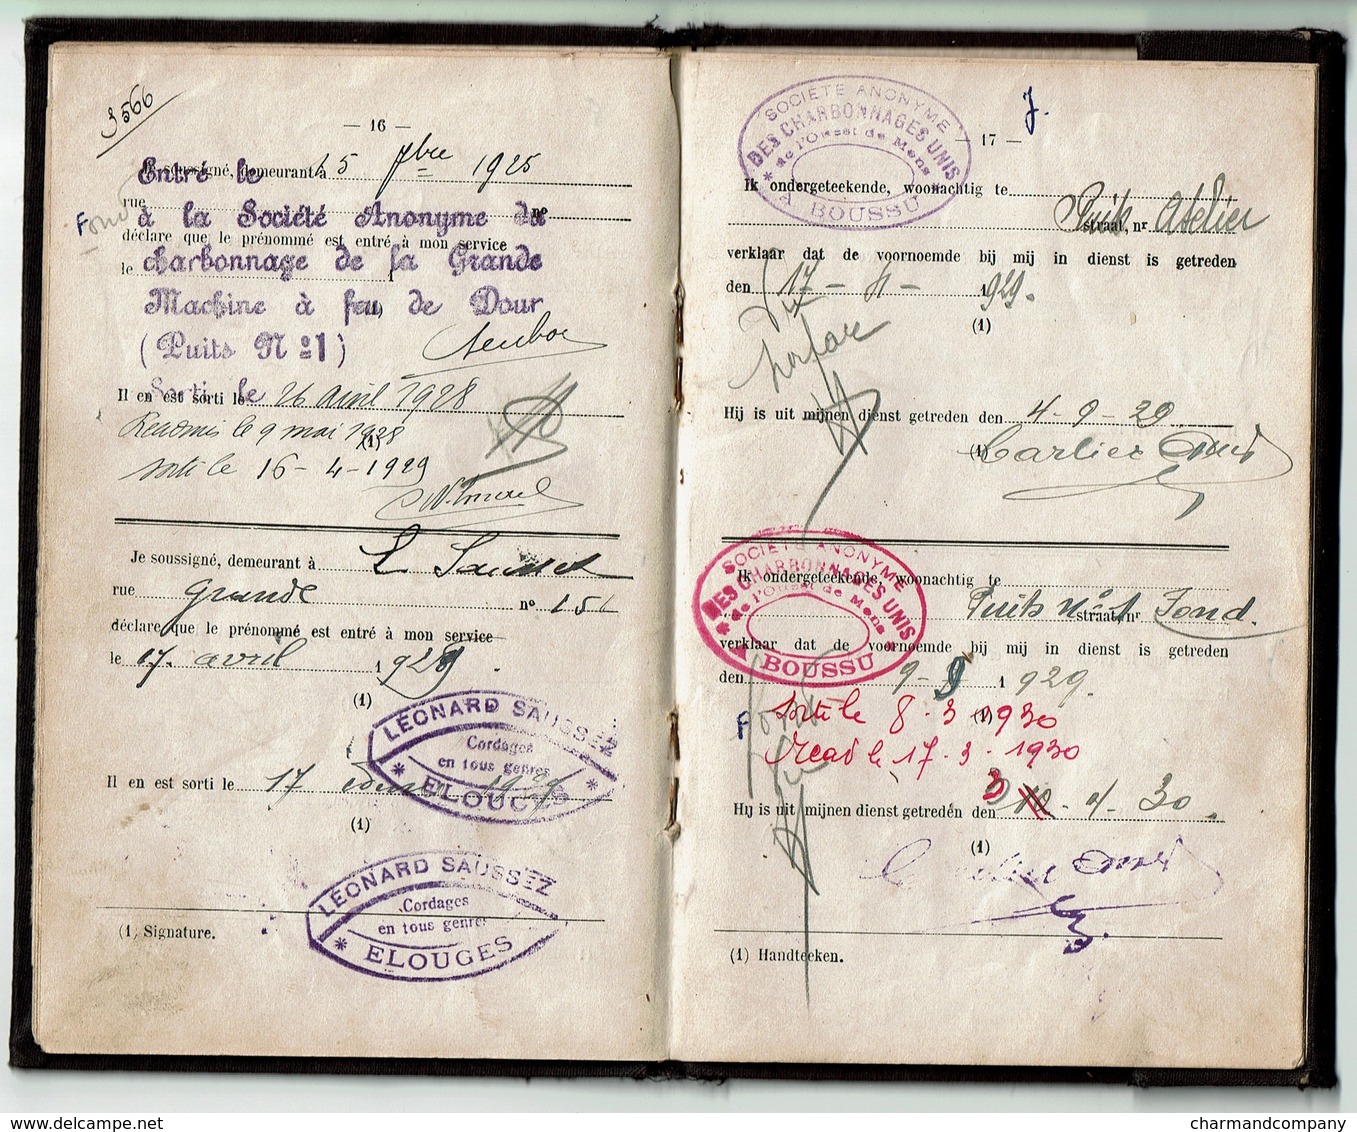 3566
— 16 —
Je soussigné, demeurant à
Entré le 15 7bre 1925
rue nº
Fond
à la Société Anonyme du
déclare que le prénommé est entré à mon service
charbonnage de la Grande
le 1
Machine à feu de Dour
(Puits Nº1)
Sorti le
Il en est sorti le 26 avril 1928
Readmis le 9 mai 1928
(1)
sorti le 16-4-1929
Je soussigné, demeurant à L Saussez
rue Grande nº 151
déclare que le prénommé est entré à mon service
le 17 avril 1929
(1)
LÉONARD SAUSSEZ
Cordages
en tous genres
* ELOUGES *
Il en est sorti le 17 1929
(1)
LÉONARD SAUSSEZ
Cordages
en tous genres
* ELOUGES
(1, Signature.
J.
— 17 —
SOCIÉTÉ ANONYME
DES CHARBONNAGES UNIS
de l'Ouest de Mons
À BOUSSU
Ik ondergeteekende, woonachtig te
Puits Atelier
straat, nr.
verklaar dat de voornoemde bij mij in dienst is getreden
den 17-4-1929.
(1)
Hij is uit mijnen dienst getreden den 4-9-29
(1) Carlier
SOCIÉTÉ ANONYME
DES CHARBONNAGES UNIS
de l'Ouest de Mons
À BOUSSU
Ik ondergeteekende, woonachtig te
Puits nº1 Fond.
straat, nr
verklaar dat de voornoemde bij mij in dienst is getreden
den 9-9 1929.
(1)
F
Sorti le 8-3-1930
Read le 17-3-1930
Hij is uit mijnen dienst getreden den 3-4-30
(1)
(1) Handteeken.
charmandcompany